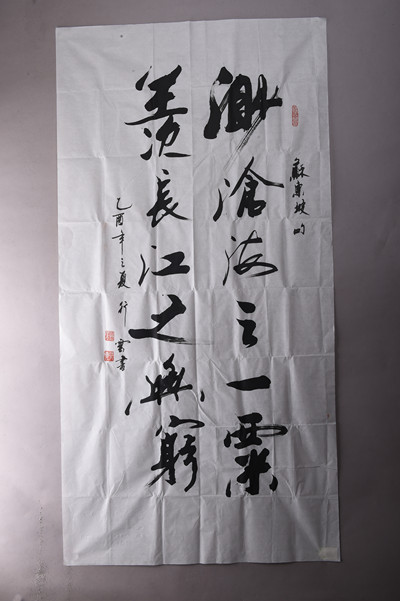 蘇東坡句
渺滄海之一粟
羨長江之無窮
乙酉年之夏行雲書